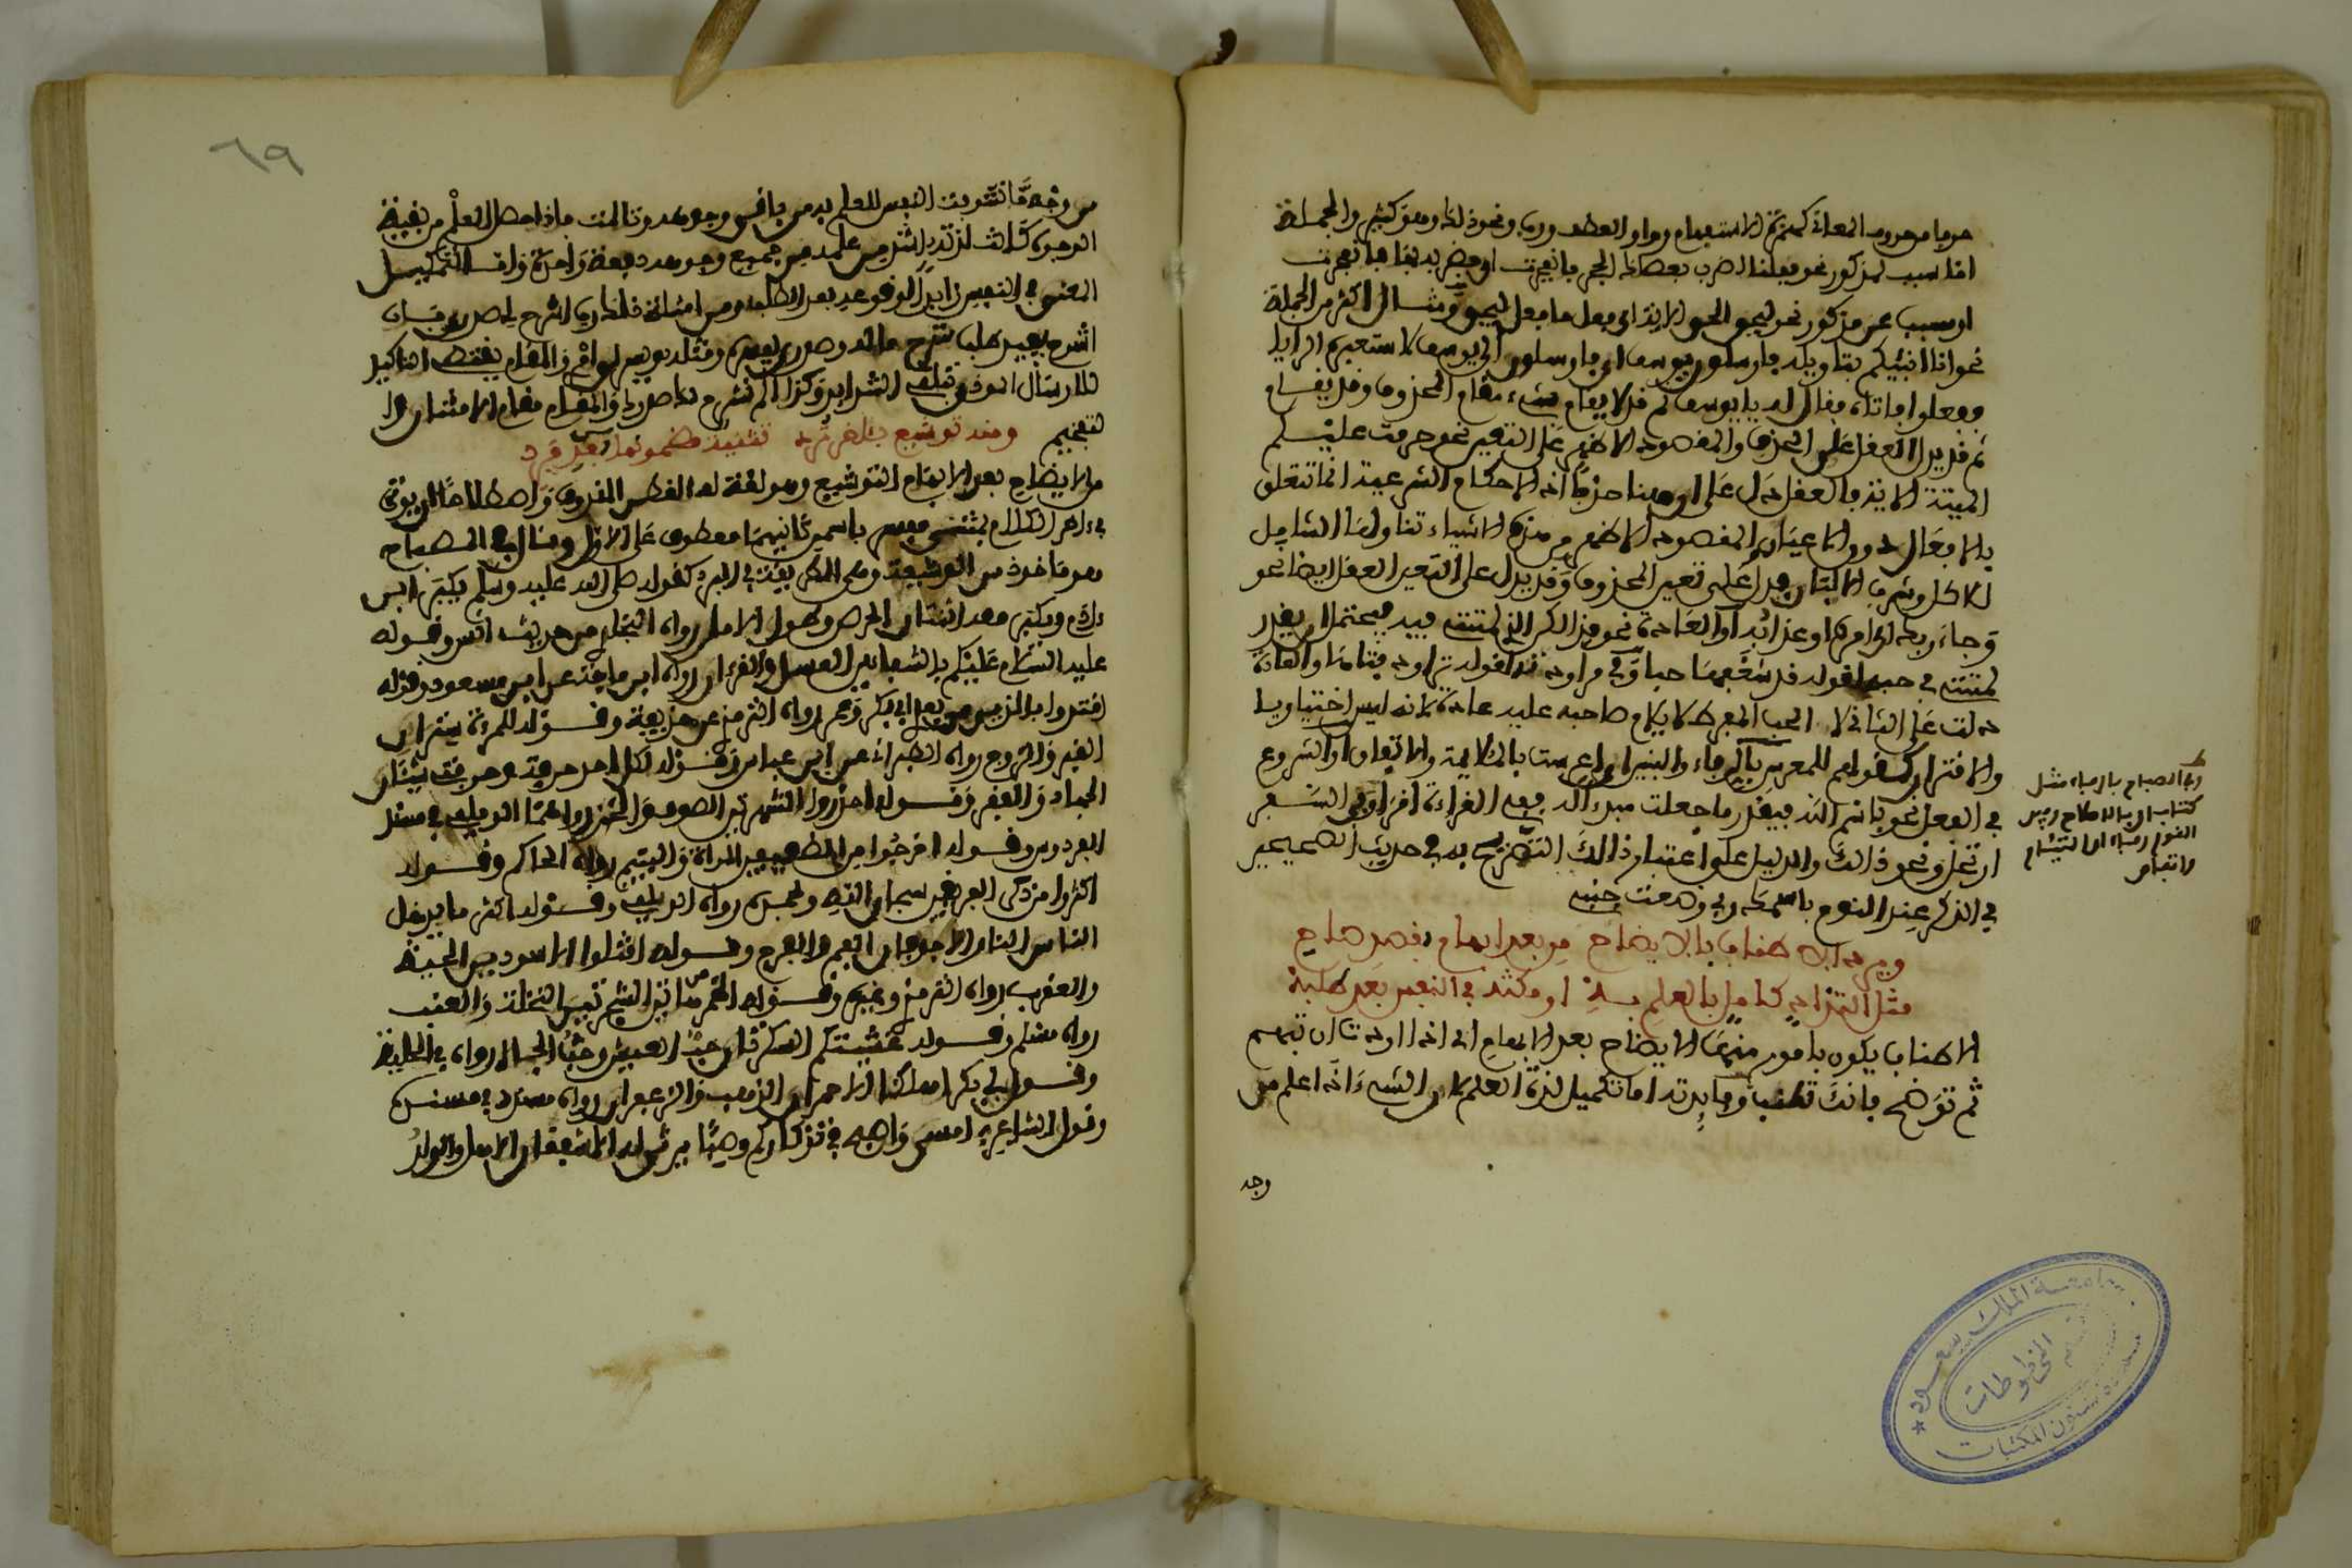 حرفا من حروف المعاني كهمزة الاستفهام وواو العطف ورب ونحو ذلك وهو كثير والجملة
اما سبب لمذكور نحو فقلنا اضرب بعصاك الحجر فانفجرت اي فضربه بها فانفجرت
او مسبب عن مذكور نحو ليحق الحق الاية اي فعل ما فعل ليحق ومثال اكثر من الجملة
نحو انا انبئكم بتاويله فارسلون يوسف اي فارسلون الى يوسف لاستعبره الرؤيا
ففعلوا فاتاه فقال له يا يوسف ثم قد لا يقام شيء مقام المحذوف وقد يقام
ثم قد يدل العقل على الحذف والمقصود الاظهر على التعيين نحو حرمت عليكم
الميتة الاية فالعقل دل على ان هنا حذفا اذ الاحكام الشرعية انما تتعلق
بالافعال دون الاعيان والمقصود الاظهر من هذه الاشياء تناولها الشامل
للاكل وشرب الالبان فدل على تعيين المحذوف وقد يدل على التعيين العقل ايضا نحو
وجاء ربك اي امره او عذابه او العادة نحو فذلكن الذي لمتنني فيه فيحتمل ان يقدر
لمتنني في حبه لقوله قد شغفها حبا وفي مراودته لقوله تراود فتاها والعادة
دلت على الثاني لان الحب المفرط لا يلام صاحبه عليه عادة لانه ليس اختياريا
والاقتران كقولهم للمعرس بالرفاء والبنين اي اعرست بالملائمة والاتفاق او الشروع
في الفعل نحو باسم الله فيقدر ما جعلت مبدأ له ففي القراءة اقرأ وفي السفر
ارتحل ونحو ذلك والدليل على اعتبار ذلك التصريح به في حديث الصحيحين
في الذكر عند النوم باسمك ربي وضعت جنبي
ويرد الاطناب بالايضاح من بعد ابهام لقصد صاح
مثل التذاذ كامل بالعلم به او مكثه في النفس بعد طلبه
الاطناب يكون بامور منها الايضاح بعد الابهام اي اذا اردت ان تبهم
ثم توضح فانك تطنب وفائدته اما تكميل لذة العلم لان الشيء اذا علم من
وجه
في الصباح بالرفاء مثل
كتاب اي بالاصلاح وبين
القوم رفاء اي التئام
واتفاق
٦٩
من وجه ما تشوفت النفس للعلم به من باقي وجوهه وتالمت فاذا حصل العلم من بقية
الوجوه كانت لذته اشد من علمه من جميع وجوهه دفعة واحدة واما لتمكين
المعنى في النفس زائدا لوقوعه بعد الطلب ومن امثلته قال رب اشرح لي صدري فان
اشرح يفيد طلب شرح ما له وصدري يفسره ومثله ويسر لي امري والمقام يقتضي التاكيد
للارسال المؤذن بتلقي الشدائد وكذا الم نشرح لك صدرك والمقام مقام الامتنان والتفخيم
ومنه توشيع بالاخر ترد تثنية مضمونها بعد فرد
من الايضاح بعد الابهام التوشيع وهو لغة لف القطن المندوف واصطلاحا ان يؤتى
في اخر الكلام بمثنى مفسر باسمين ثانيهما معطوف على الاول وقال في المصباح
هو ماخوذ من الوشيعة وهي الطريقة في البرد كقوله صلى الله عليه وسلم يكبر ابن
ادم ويكبر معه اثنتان الحرص وطول الامل رواه البخاري من حديث انس وقوله
عليه السلام عليكم بالشفاءين العسل والقرءان رواه ابن ماجه عن ابن مسعود وقوله
اقتدوا بالذين من بعدي ابي بكر وعمر رواه الترمذي عن حذيفة وقوله للمرءة ستران
القبر والزوج رواه الطبراني عن ابن عباس وقوله لكل احد حرفة وحرفتي شيئان
الجهاد والفقر وقوله احذروا الشهرتين الصوف والخز رواهما الديلمي في مسند
الفردوس وقوله احرجوا من الضعيفين المراة واليتيم رواه الحاكم وقوله
اكثروا من ذكر القرينين سبحان الله وبحمده رواه الديلمي وقوله اكثر ما يدخل
الناس النار الاجوفان الفم والفرج وقوله اقتلوا الاسودين الحية
والعقرب رواه الترمذي وغيره وقوله الخمر من هاتين الشجرتين النخلة والعنب
رواه مسلم وقوله غشيتكم السكرتان حب العيش وحب الجهل رواه في الحلية
وقول ابي بكر اهلكنا الاحمران الذهب والزعفران رواه مسدد في مسنده
وقول الشاعر امسي واصبح من تذكاركم وصبا يرثي له المشفقان الاهل والولد
جامعة الملك سعود
قسم المخطوطات
عمادة شئون المكتبات